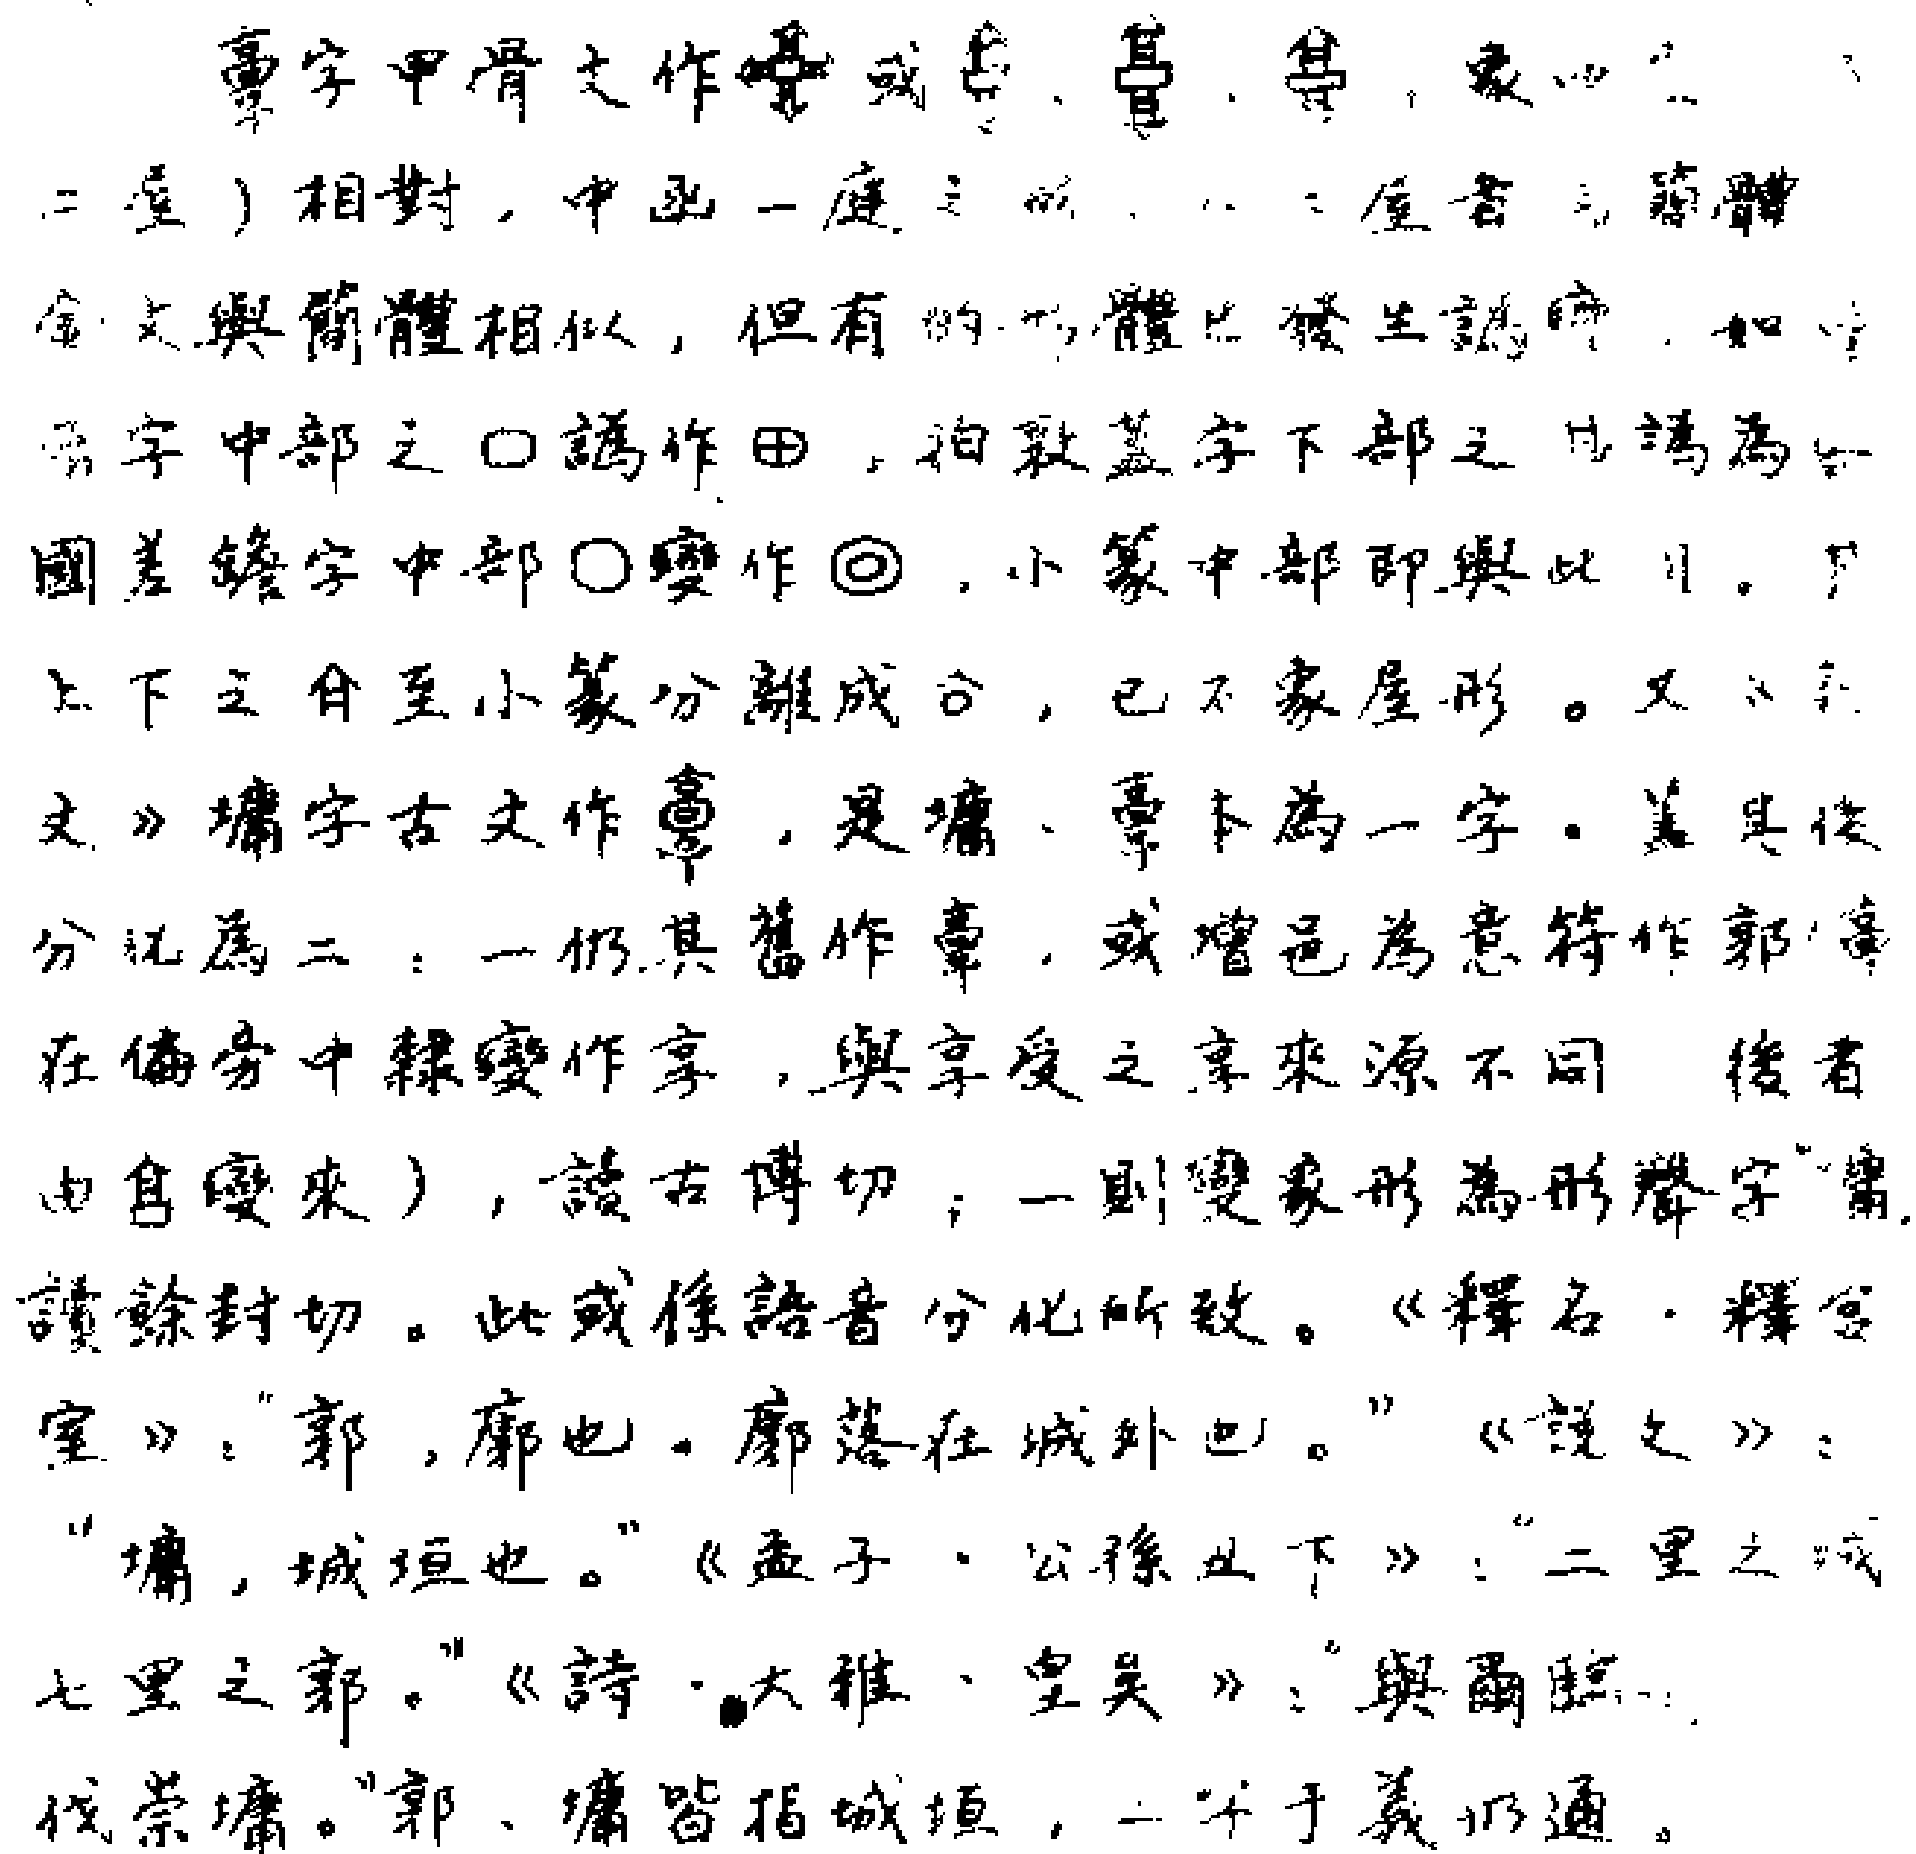 𩫖字甲骨文作 或 、 、 , 象
二屋）相對,中函一庭之 二屋者 簡體
金文與簡體相似,但有的 體已發生譌變,如
字中部之〇譌作⊕,拍敦蓋字下部之 譌為
國差𦉜字中部〇變作◎,小篆中部即與此 。
上下之 至小篆分離成 ,已不象屋形。又《說
文》墉字古文作𩫖,是墉、𩫖本為一字。蓋其後
分化為二:一仍其舊作𩫖,或增邑為意符作郭(𩫖
在偏旁中隸變作享,與享受之享來源不同 後者
由𠅠變來）,讀古博切;一則變象形為形聲字“墉,
讀餘封切。此或係語音分化所致。《釋名·釋宮
室》:“郭,廓也。廓落在城外也。”《說文》:
“墉,城垣也。”《孟子·公孫丑下》:“三里之城
七里之郭。”《詩·大雅·皇矣》:“與爾臨
伐崇墉。”郭、墉皆指城垣,二字于義仍通。